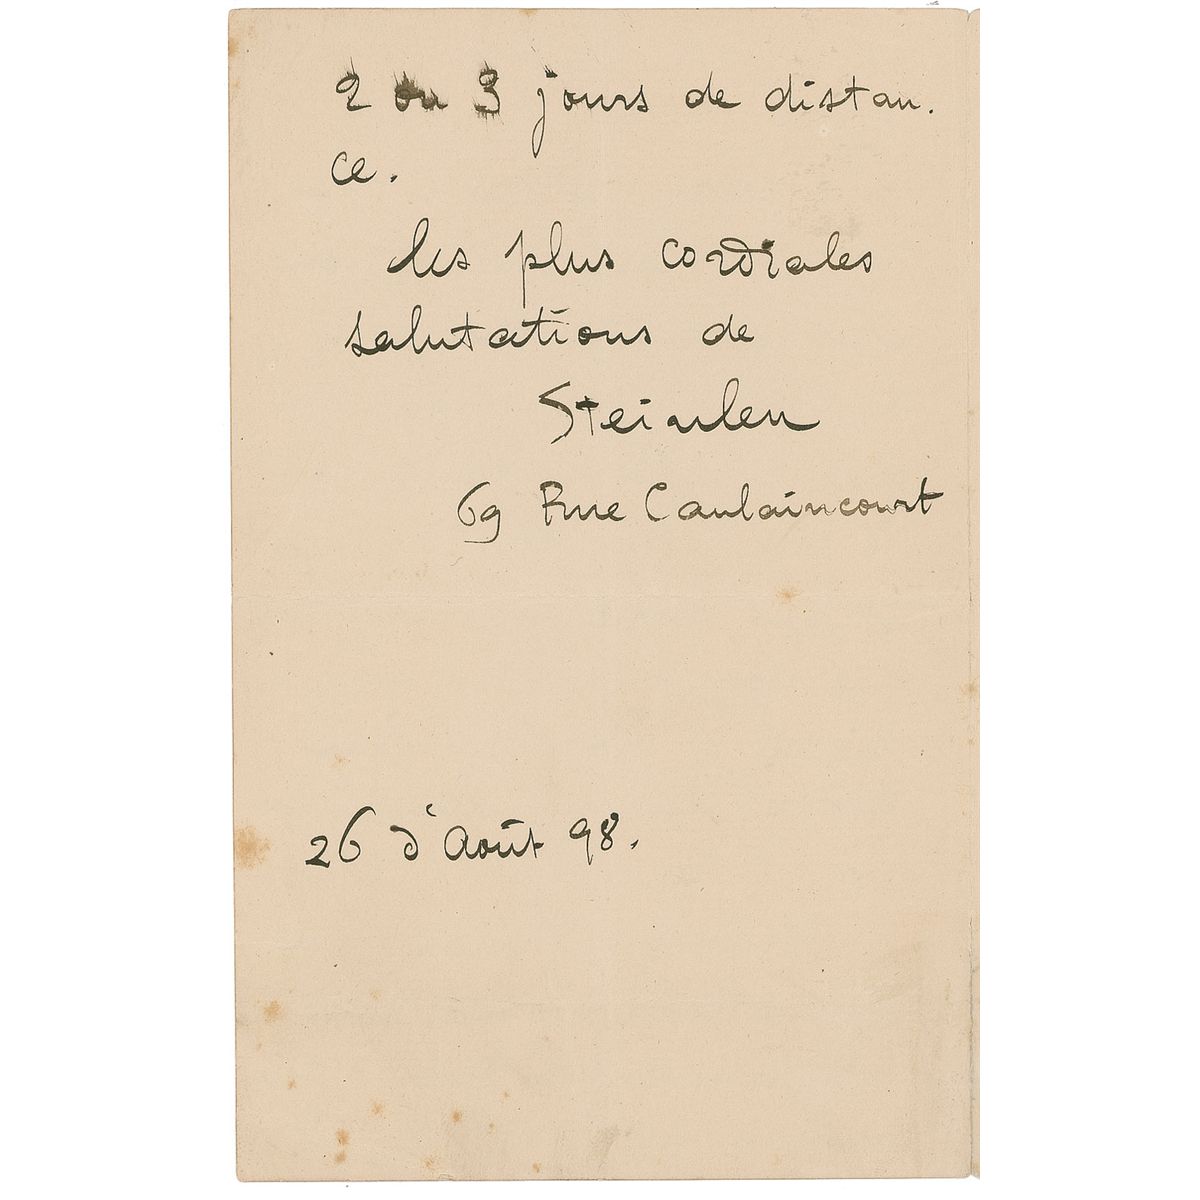 2 ou 3 jours de distan.
ce.
les plus cordiales
salutations de
Steinlen
69 Rue Caulaincourt
26 d'Août 98.